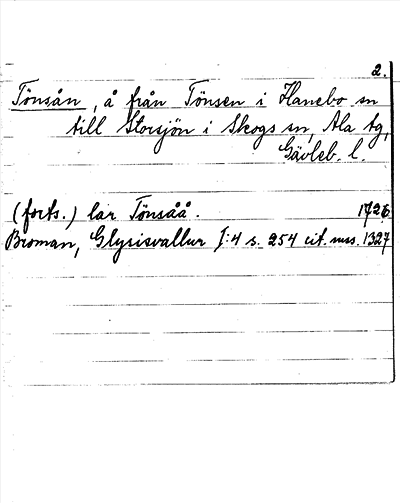 2.
Tönsån, å från Tönsen i Hanebo sn
till Storsjön i Skogs sn, Ala tg,
Gävleb. l.
(forts.) lär Tönsåå. 1726.
Broman, Glysisvallur I:4 s. 254 cit. mss. 1327